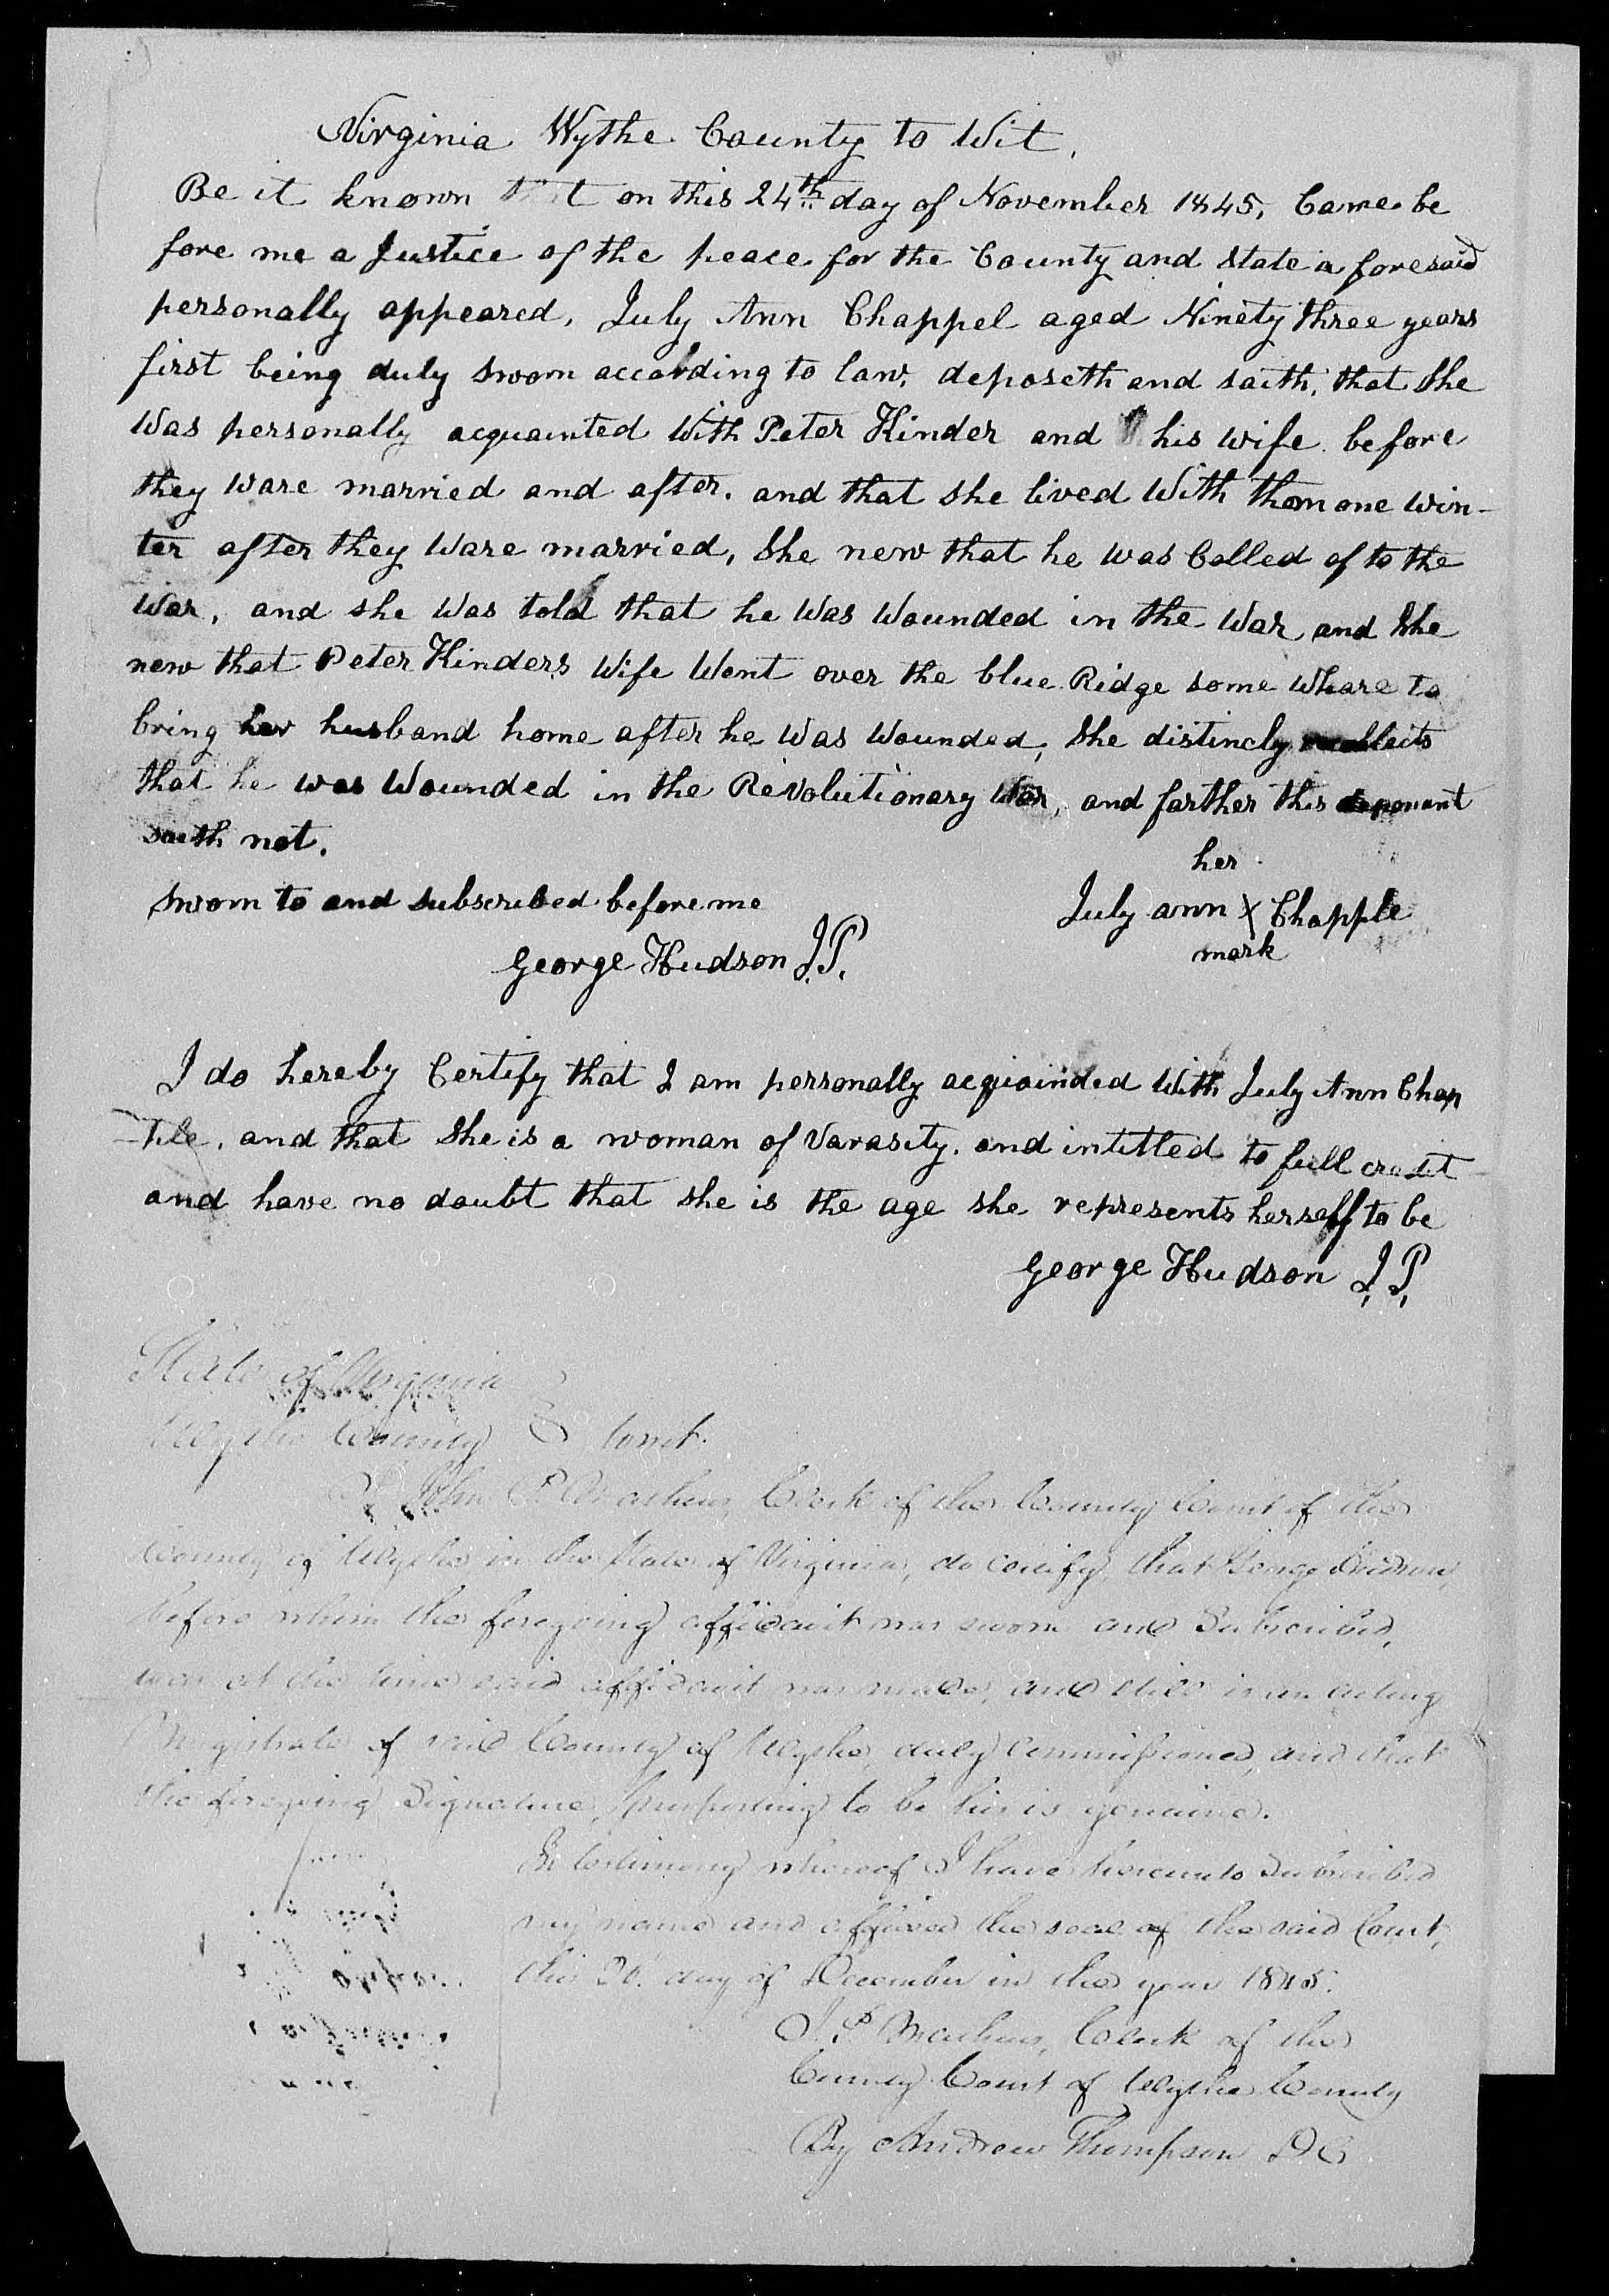 Virginia Wythe County to Wit,
Be it known that on this 24th day of November 1845, Came be
fore me a Justice of the peace for the County and State a foresaid
personally appeared, July Ann Chappel aged Ninety three years
first being duly sworn according to law, deposeth and saith, that She
Was personally acquainted With Peter Kinder and his wife before
they ware married and after. and that she lived With them one win-
ter after they Ware married, She new that he was Called of to the
War, and she Was told that he Was Wounded in the War and She
new that Peter Kinders Wife Went over the blue Ridge some Whare to
bring her husband home after he Was Wounded, She distincly recollects
that he was Wounded in the Revolutionary War, and farther this deponant
saeth not.
her
sworn to and subscribed before me
July ann X Chapple
mark
George Hudson J.P.
I do hereby Certify that I am personally acquainded With July Ann Chap
and that She is a woman of Varasity. and intitled to full credit
and have no doubt that she is the age she represents herself to be
George Hudson J.P.
State of Virginia
Wythe County towit.
I John P. Mathews, Clerk of the County Court of the
County of Wythe in the State of Virginia, do certify, that George Hudson,
before whom the foregoing affidavit was sworn and Subscribed,
was at the time said affidavit was made, and still is an acting
Magistrate of said County of Wythe, duly commissioned, and that
the foregoing Signature, purporting to be his is genuine.
In testimony whereof I have hereunto Subscribed
my name and affixed the seal of the said Court,
this day of December in the year 1845.
J. P. Mathews, Clerk of the
County Court of Wythe County
By Andrew Thompson DC